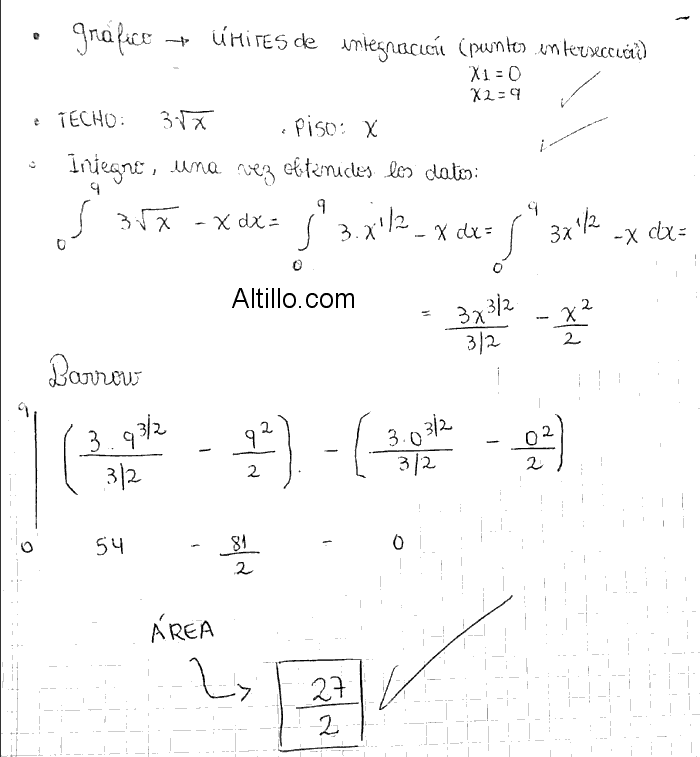 • gráfico → LÍMITES de integración (puntos intersección)
x1 = 0
x2 = 9
• TECHO: 3√x . PISO: x
• Integro, una vez obtenidos los datos:
∫₀⁹ 3√x - x dx = ∫₀⁹ 3.x^1/2 - x dx = ∫₀⁹ 3x^1/2 - x dx =
Altillo.com
= 3x^3/2 / 3/2 - x^2 / 2
Barrow
|₀⁹ (3.9^3/2 / 3/2 - 9^2 / 2) - (3.0^3/2 / 3/2 - 0^2 / 2)
54 - 81/2 - 0
ÁREA
27/2